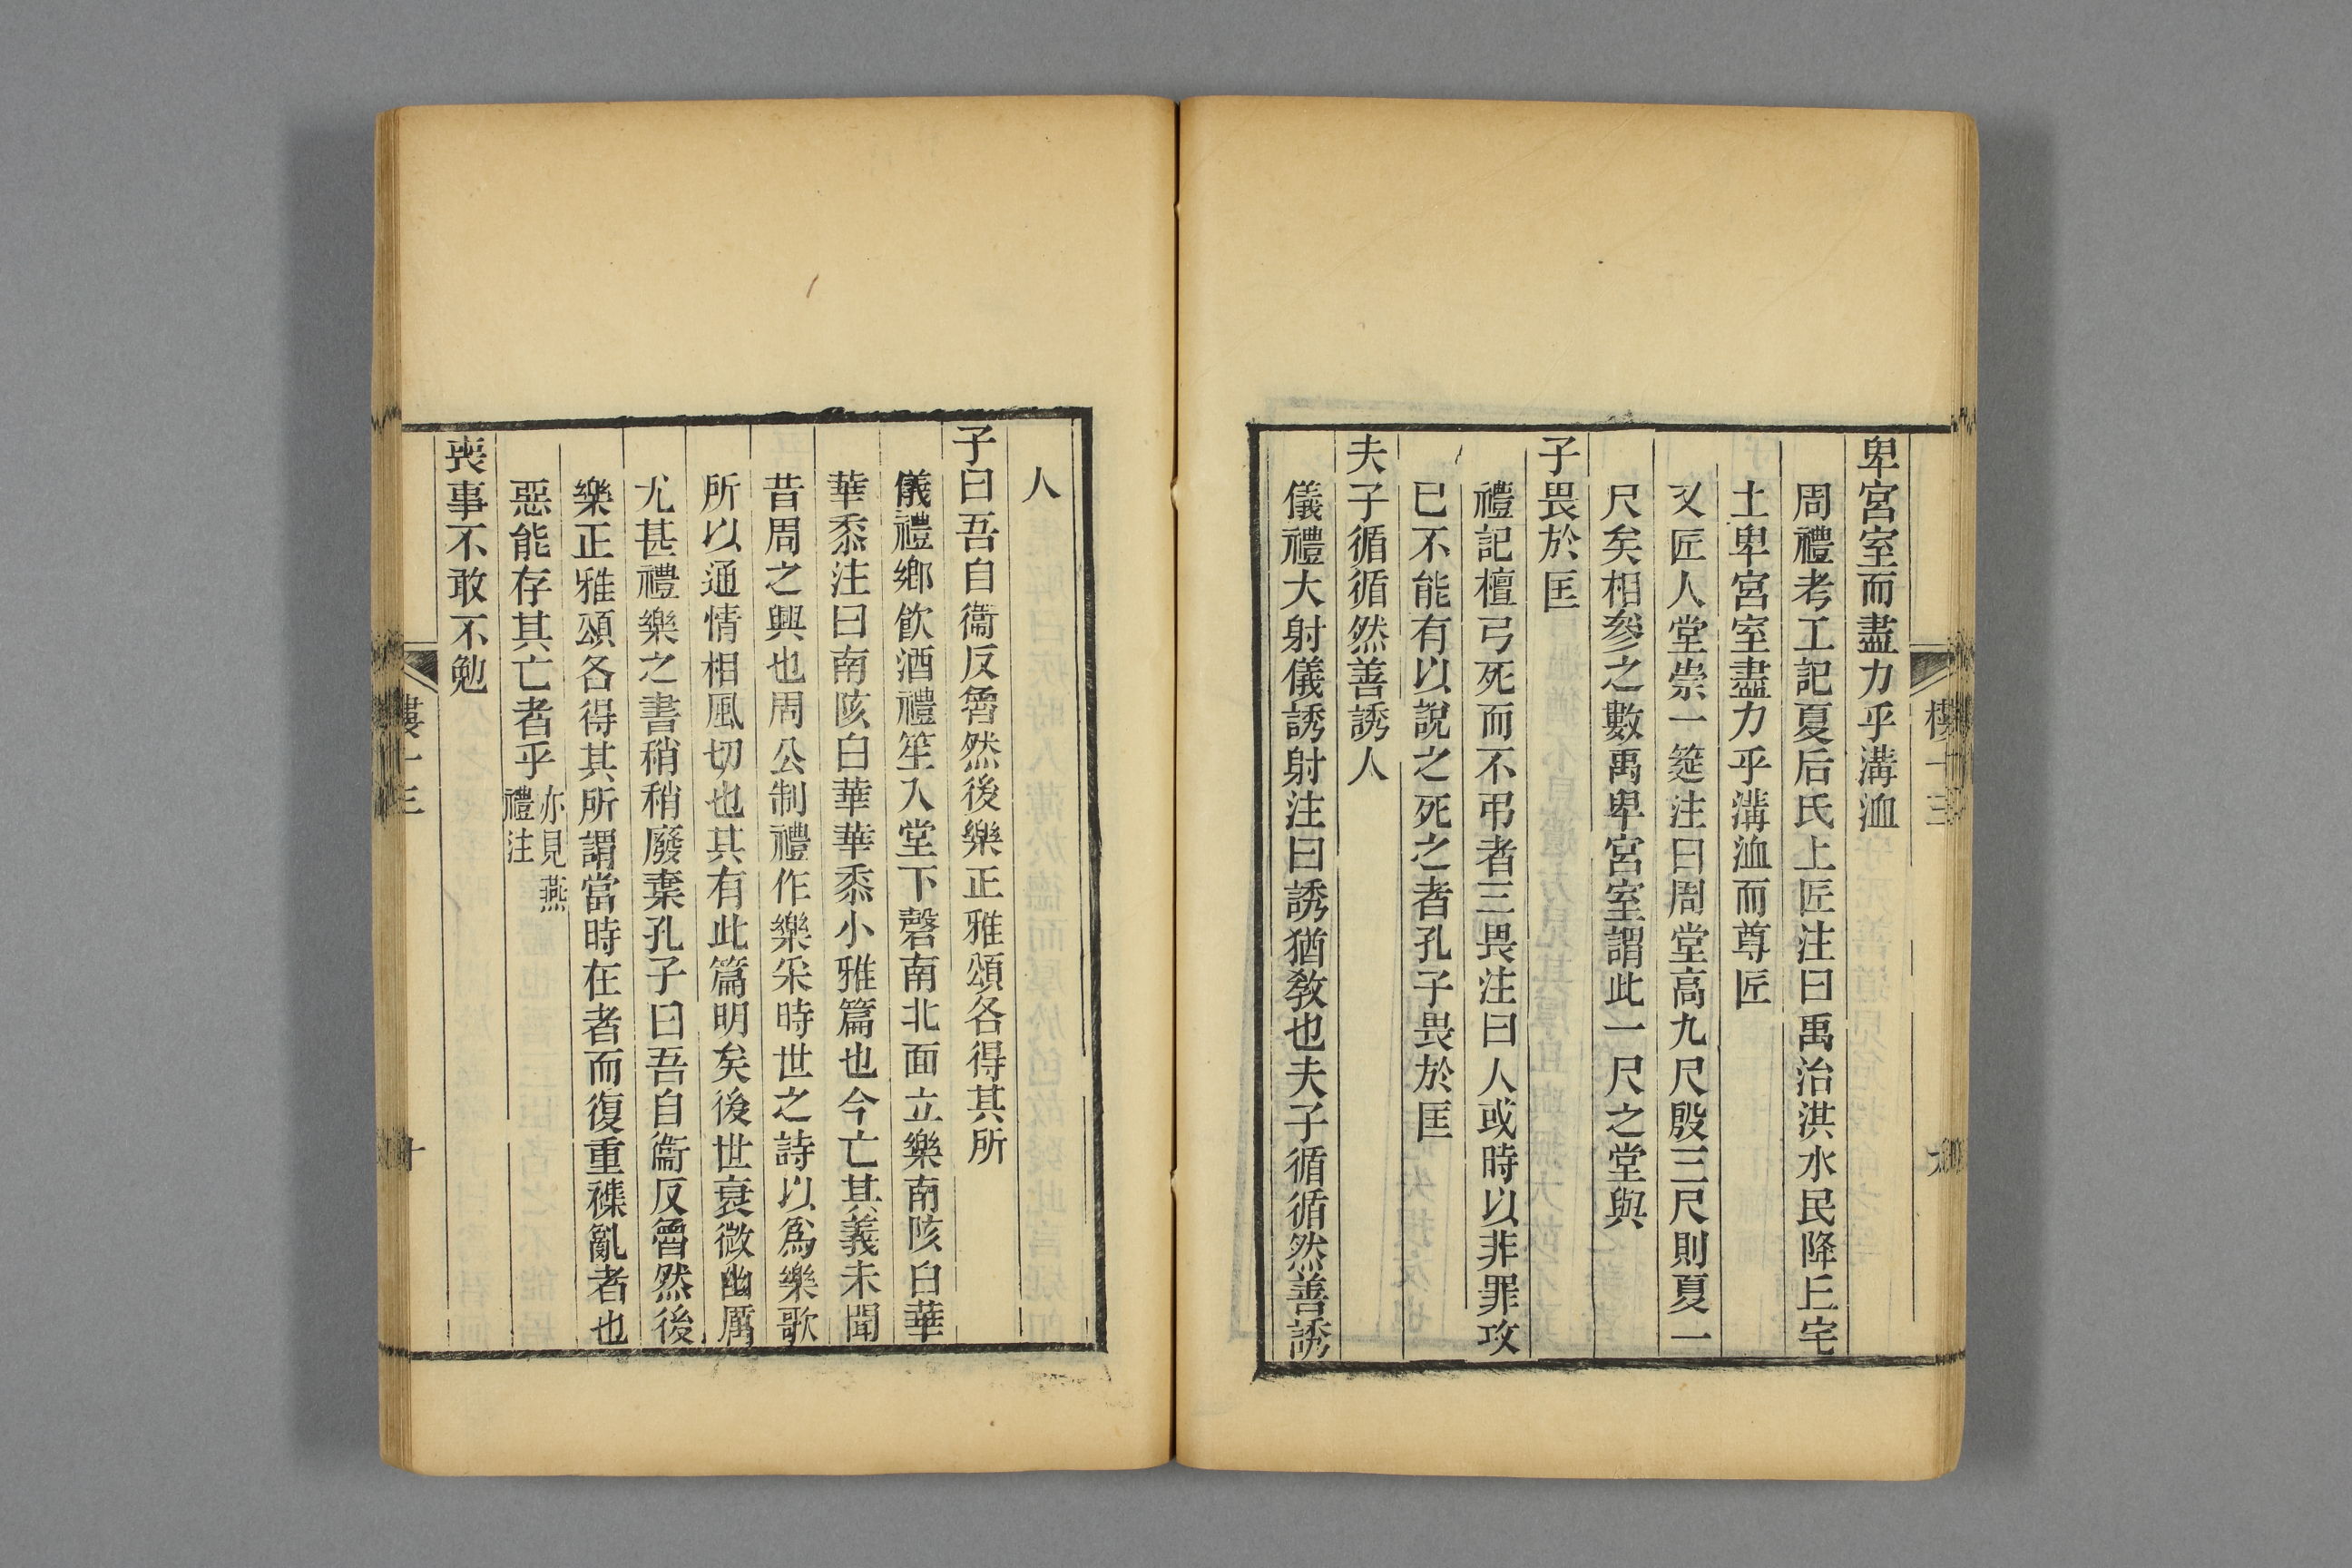 卑宮室而盡力乎溝洫
周禮考工記夏后氏上匠注曰禹治洪水民降丘宅
土卑宮室盡力乎溝洫而尊匠
又匠人堂崇一筵注曰周堂高九尺殷三尺則夏一
尺矣相參之數禹卑宮室謂此一尺之堂與
子畏於匡
禮記檀弓死而不弔者三畏注曰人或時以非罪攻
已不能有以說之死之者孔子畏於匡
夫子循循然善誘人
儀禮大射儀誘射注曰誘猶敎也夫子循循然善誘
人
子曰吾自衞反魯然後樂正雅頌各得其所
儀禮鄉飮酒禮笙入堂下磬南北面立樂南陔白華
華黍注曰南陔白華華黍小雅篇也今亡其義未聞
昔周之興也周公制禮作樂采時世之詩以爲樂歌
所以通情相風切也其有此篇明矣後世衰微幽厲
尤甚禮樂之書稍稍廢棄孔子曰吾自衞反魯然後
樂正雅頌各得其所謂當時在者而復重襍亂者也
惡能存其亡者乎亦見燕
禮注
喪事不敢不勉
十